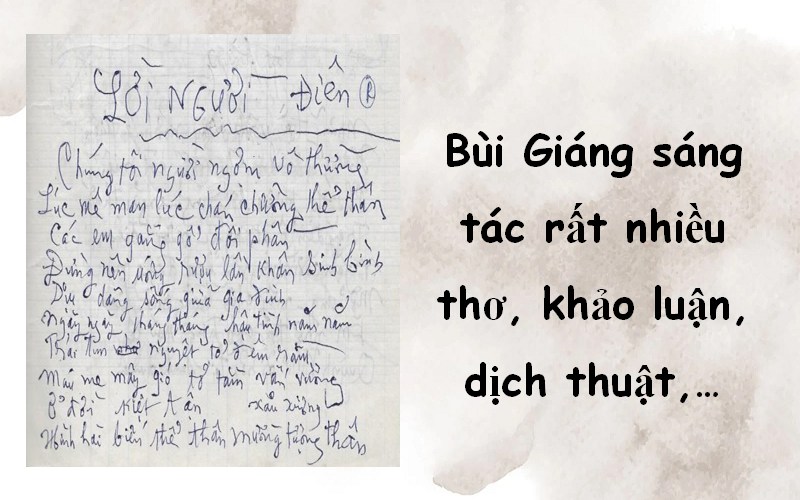 Lời Người Điên
Chúng tôi người ngợm vô thường
Lúc mê man lúc chán chường thể thân
Các em gắng gổ đôi phần
Đừng nên uống rượu lần khân bình
Dịu dàng sống giữa gia đình
Ngày ngày tháng tháng hậu tình năm năm
Trái tim nguyệt tỏ đêm rằm
Mây gió tơ tằm vấn vương
Ở đời kiệt tận
Hình hài biến thể thân mường tượng thân
Bùi Giáng sáng
tác rất nhiều
thơ, khảo luận,
dịch thuật,...